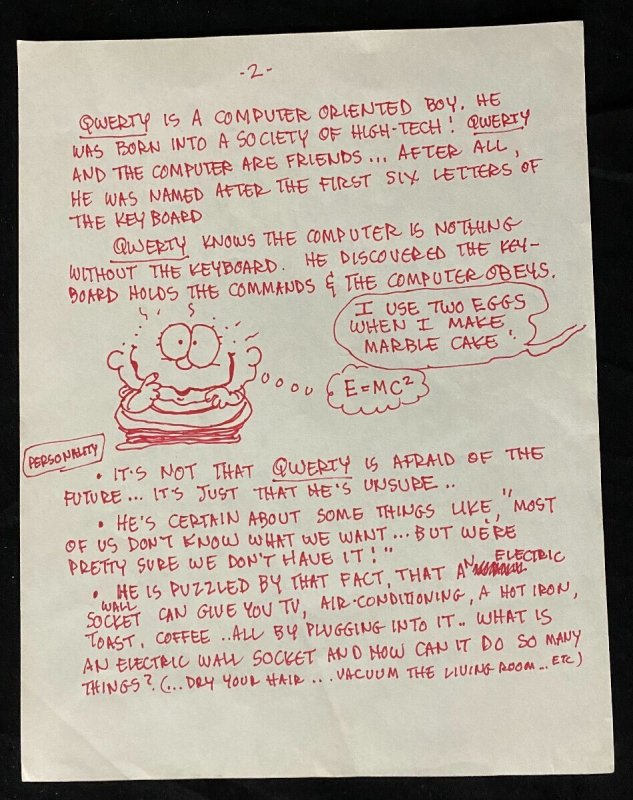 -2-
QWERTY IS A COMPUTER ORIENTED BOY. HE
WAS BORN INTO A SOCIETY OF HIGH-TECH! QWERTY
AND THE COMPUTER ARE FRIENDS... AFTER ALL,
HE WAS NAMED AFTER THE FIRST SIX LETTERS OF
THE KEY BOARD
QWERTY KNOWS THE COMPUTER IS NOTHING
WITHOUT THE KEYBOARD. HE DISCOVERED THE KEY-
BOARD HOLDS THE COMMANDS & THE COMPUTER OBEYS.
I USE TWO EGGS
WHEN I MAKE
MARBLE CAKE.
E=MC²
PERSONALITY
• IT'S NOT THAT QWERTY IS AFRAID OF THE
FUTURE... IT'S JUST THAT HE'S UNSURE..
• HE'S CERTAIN ABOUT SOME THINGS LIKE, "MOST
OF US DON'T KNOW WHAT WE WANT... BUT WE'RE
PRETTY SURE WE DON'T HAVE IT!"
• HE IS PUZZLED BY THAT FACT, THAT AN ELECTRIC
WALL SOCKET CAN GIVE YOU TV, AIR-CONDITIONING, A HOT IRON,
TOAST, COFFEE ..ALL BY PLUGGING INTO IT.. WHAT IS
AN ELECTRIC WALL SOCKET AND HOW CAN IT DO SO MANY
THINGS? (...DRY YOUR HAIR ... VACUUM THE LIVING ROOM... ETC)